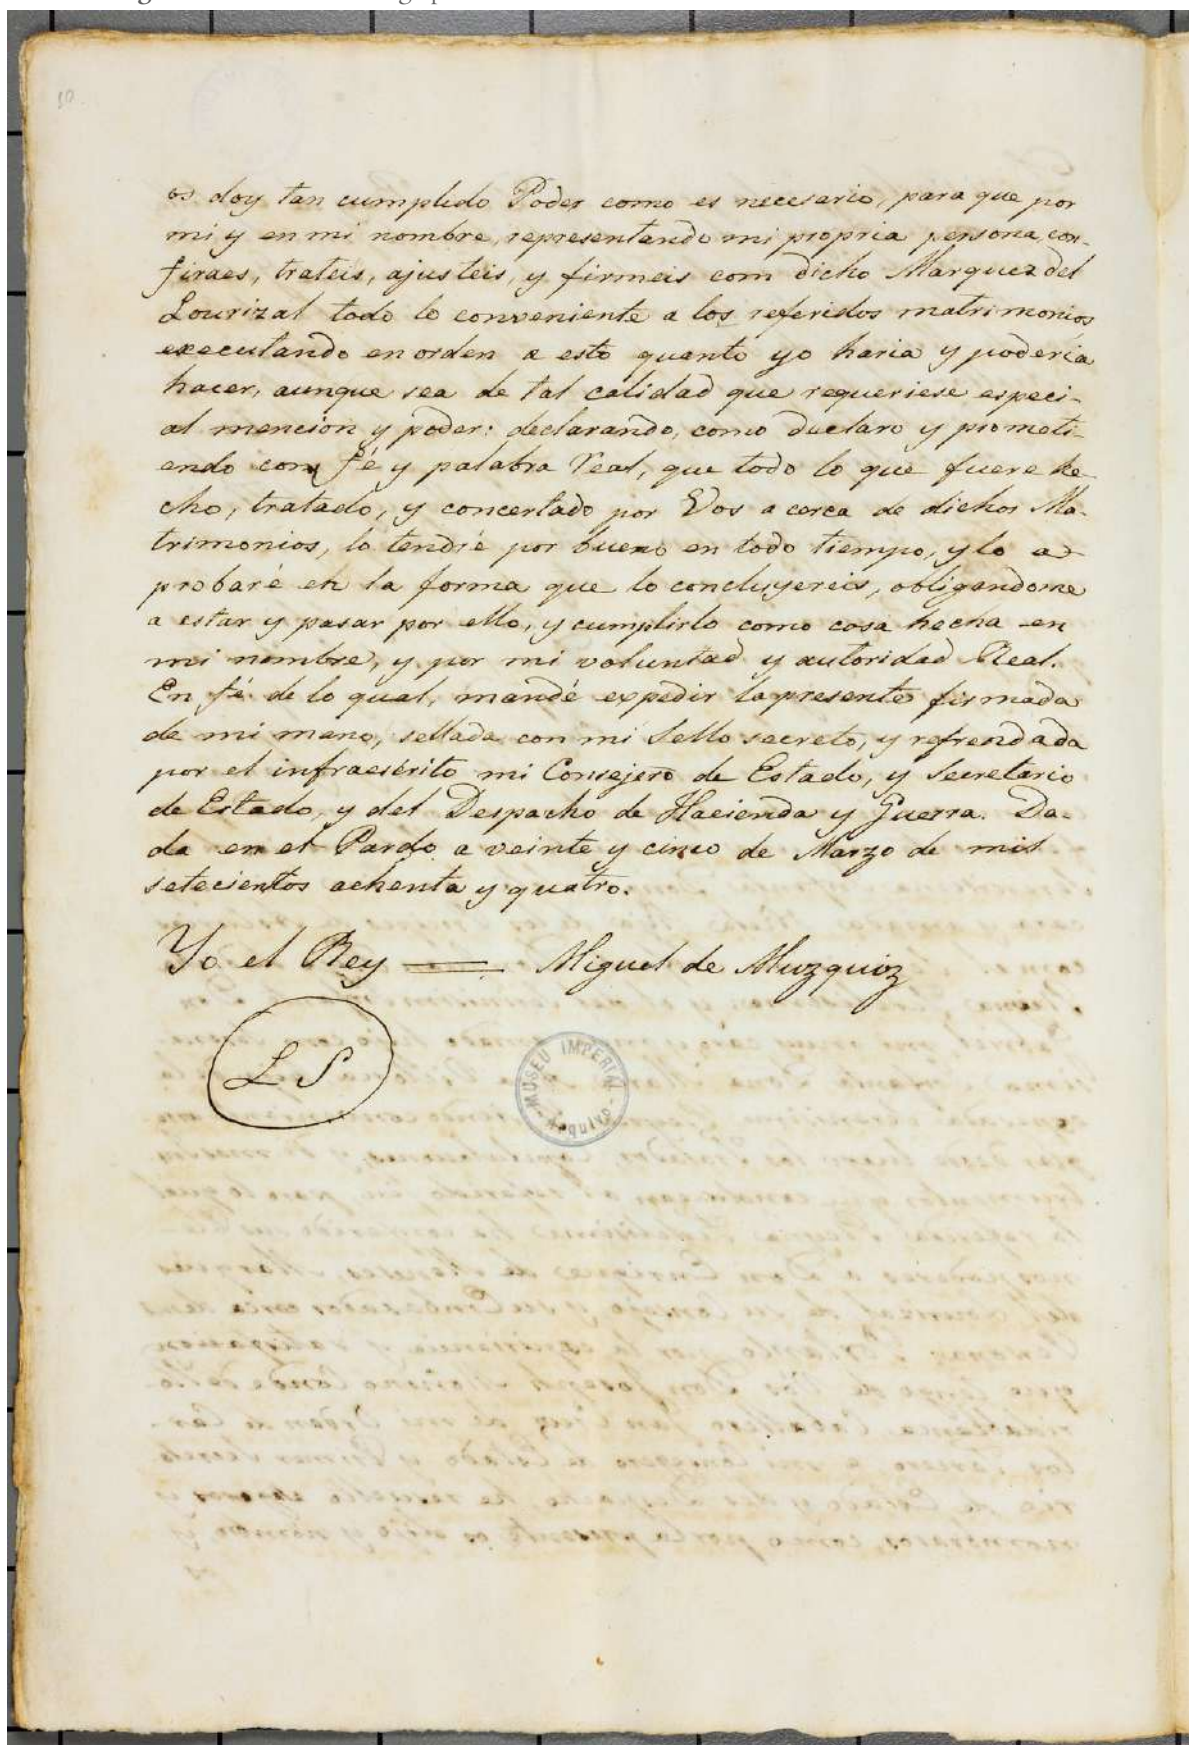 10.
os doy tan cumplido Poder como es necesario, para que por
mi y en mi nombre, representando mi propria persona, con-
firaes, trateis, ajusteis, y firmeis com dicho Marquez del
Lourizal todo lo conveniente a los referidos matrimonios
executando en orden a esto quanto yo haria y poderia
hacer, aunque sea de tal calidad que requeriese especi-
al mencion y poder: declarando, como duclaro y prometi-
endo con fé y palabra Real, que todo lo que fuere he-
cho, tratado, y concertado por Vos a cerca de dichos Ma-
trimonios, lo tendré por bueno en todo tiempo, y lo a-
probaré en la forma que lo concluyereis, obligandome
a estar y pasar por ello, y cumplirlo como cosa hecha en
mi nombre, y por mi voluntad y autoridad Real.
En fé de lo qual, mandé expedir la presente firmada
de mi mano, sellada con mi Sello secreto, y refrendada
por el infraescrito mi Consejero de Estado, y Secretario
de Estado, y del Despacho de Hacienda y Guerra. Da-
da en el Pardo a veinte y cinco de Marzo de mil
setecientos achenta y quatro.
Yo el Rey Miguel de Muzquiz
L S
MUSEU IMPERIAL